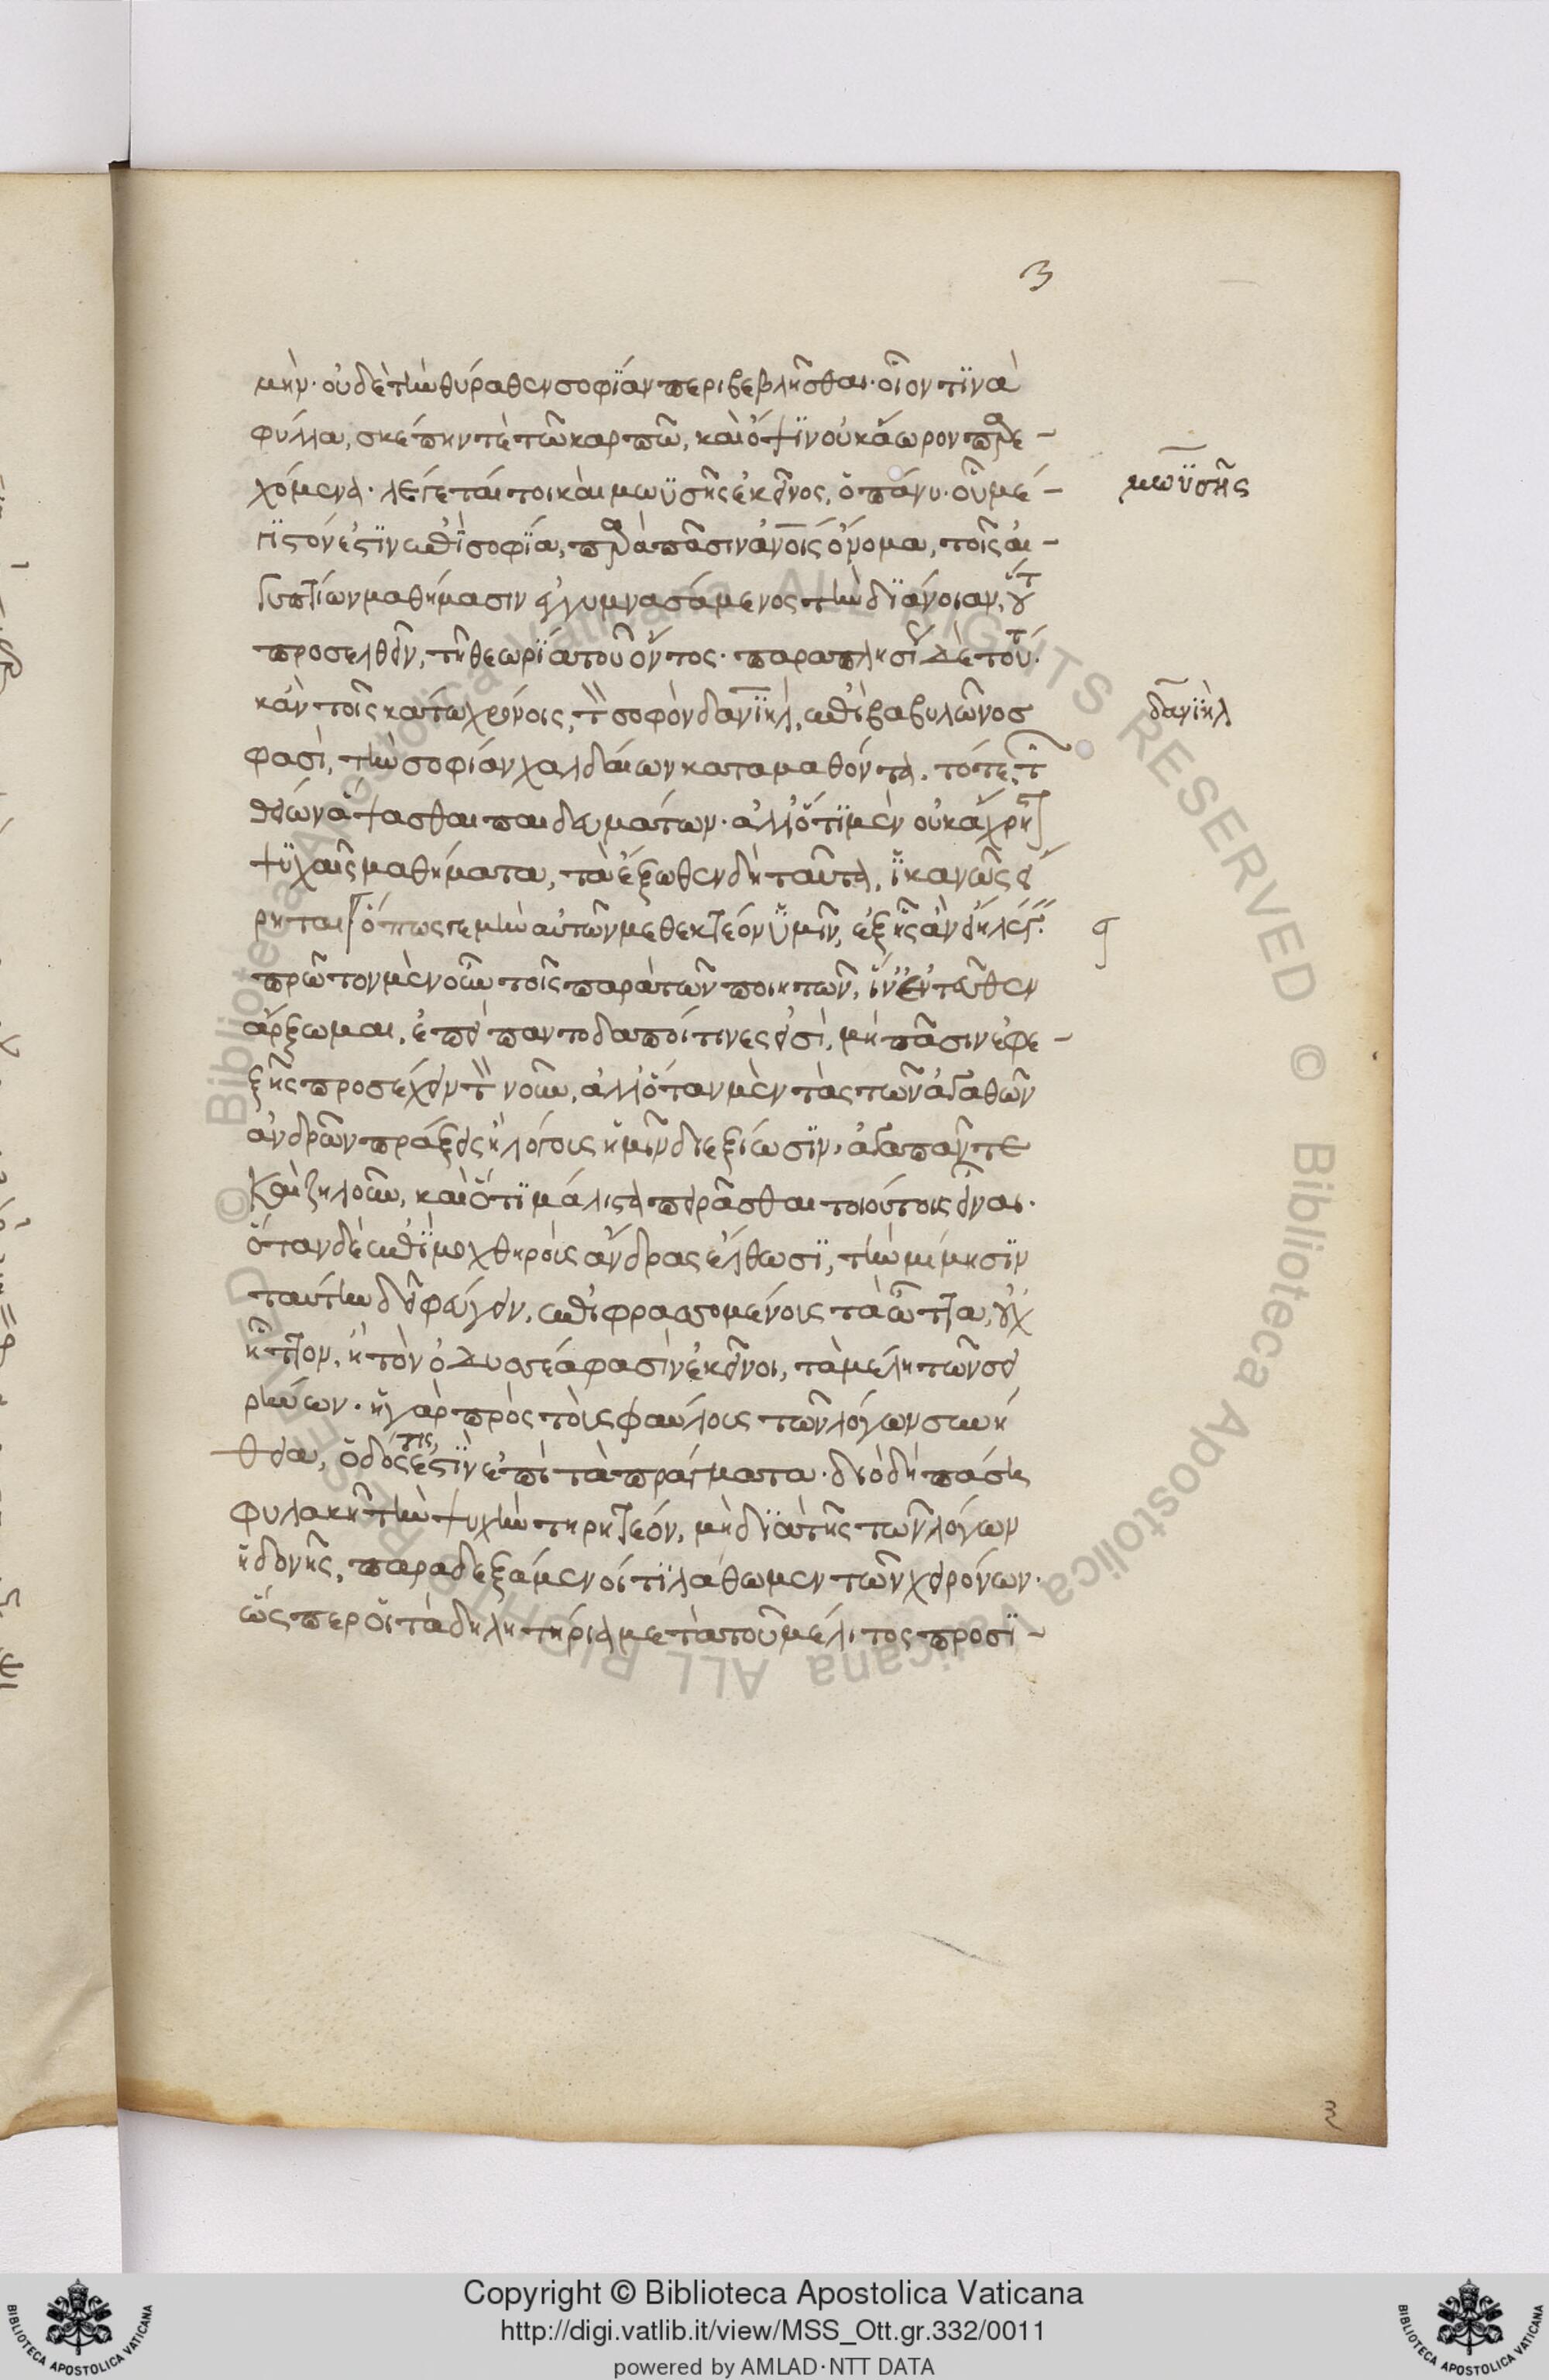 3
μὴν· οὐδὲ τὴν θύραθεν σοφίαν περιβεβλῆσθαι· οἷον τινὰ
φύλλα, σκέπην τὲ τῶ καρπῶ, καὶ ὄψιν οὐκ ἄωρον παρε-
χόμενα. λέγεται τοι καὶ μωϋσῆς ἐκεῖνος, ὁ πάνυ· οὗ μέ-
γιστόν ἐστιν ἐπὶ σοφία, παρὰ πᾶσιν ἀνοις ὄνομα, τοῖς αἰ-
γυπτίων μαθήμασιν ἐγγυμνασάμενος τὴν διάνοιαν, οὕτ
προσελθεῖν, τῆ θεωρία τοῦ ὄντος. παραπλησί δὲ τού.
κἀν τοῖς κάτω χρόνοις, τὸν σοφὸν δανιὴλ, ἐπὶ βαβυλῶνος
φασὶ, τὴν σοφίαν χαλδαίων καταμαθόντα. τότε, τ
θείων ἅψασθαι παιδευμάτων. ἀλλ' ὅτι μὲν οὐκ ἄχρη
ψυχαῖς μαθήματα, τὰ ἔξωθεν δὴ ταῦτα, ἱκανῶς εἴ
ρηται. ὅπως γε μὴν αὐτῶν μεθεκτέον ὑμῖν, ἑξῆς ἂν εἴη λέγ.
πρῶτον μὲν οὖν τοῖς παρὰ τῶν ποιητῶν, ἵν' ἐντεῦθεν
ἄρξωμαι, ἐπεὶ παντοδαποί τινες εἰσὶ, μὴ πᾶσιν ἐφε-
ξῆς προσέχειν τὸν νοῦν, ἀλλ' ὅταν μὲν τὰς τῶν ἀγαθῶν
ἀνδρῶν πράξεις ἢ λόγους ἡμῖν διεξίωσιν, ἀγαπᾶν τε
καὶ ζηλοῦν, καὶ ὅτι μάλιστα πειρᾶσθαι τοιούτοις εἶναι.
ὅταν δὲ ἐπὶ μοχθηροὺς ἄνδρας ἔλθωσι, τὴν μίμησιν
ταύτην δεῖ φεύγειν, ἐπιφραττομένοις τὰ ὦτα, οὐχ
ἧττον, ἢ τὸν ὀδυσσέα φασὶν ἐκεῖνοι, τὰ μέλη τῶν σει
ρήνων. ἡ γὰρ πρὸς τοὺς φαύλους τῶν λόγων συνή
θεια, ὁδός τις ἐστὶν ἐπὶ τὰ πράγματα. διὸ δὴ πάση
φυλακῆ τὴν ψυχὴν τηρητέον, μὴ διὰ τῆς τῶν λόγων
ἡδονῆς, παραδεξάμενοί τι λάθωμεν τῶν χειρόνων.
ὥσπερ οἱ τὰ δηλητήρια μετὰ τοῦ μέλιτος προσϊ-
μωϋσῆς
δανιὴλ
3
Copyright © Biblioteca Apostolica Vaticana
http://digi.vatlib.it/view/MSS_Ott.gr.332/0011
powered by AMLAD·NTT DATA